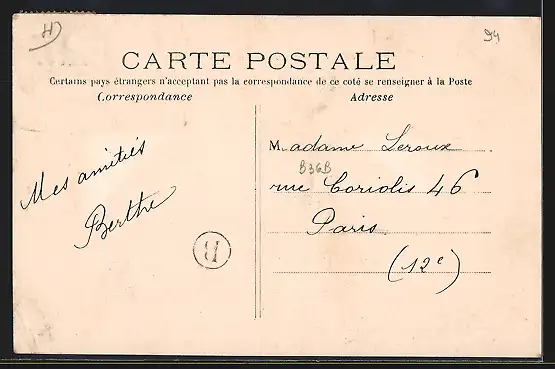 94
CARTE POSTALE
Certains pays étrangers n'acceptant pas la correspondance de ce coté se renseigner à la Poste
Correspondance
Adresse
Mes amitiés
Berthe
Madame Leroux
B36B
rue Coriolis 46
Paris
(12e)